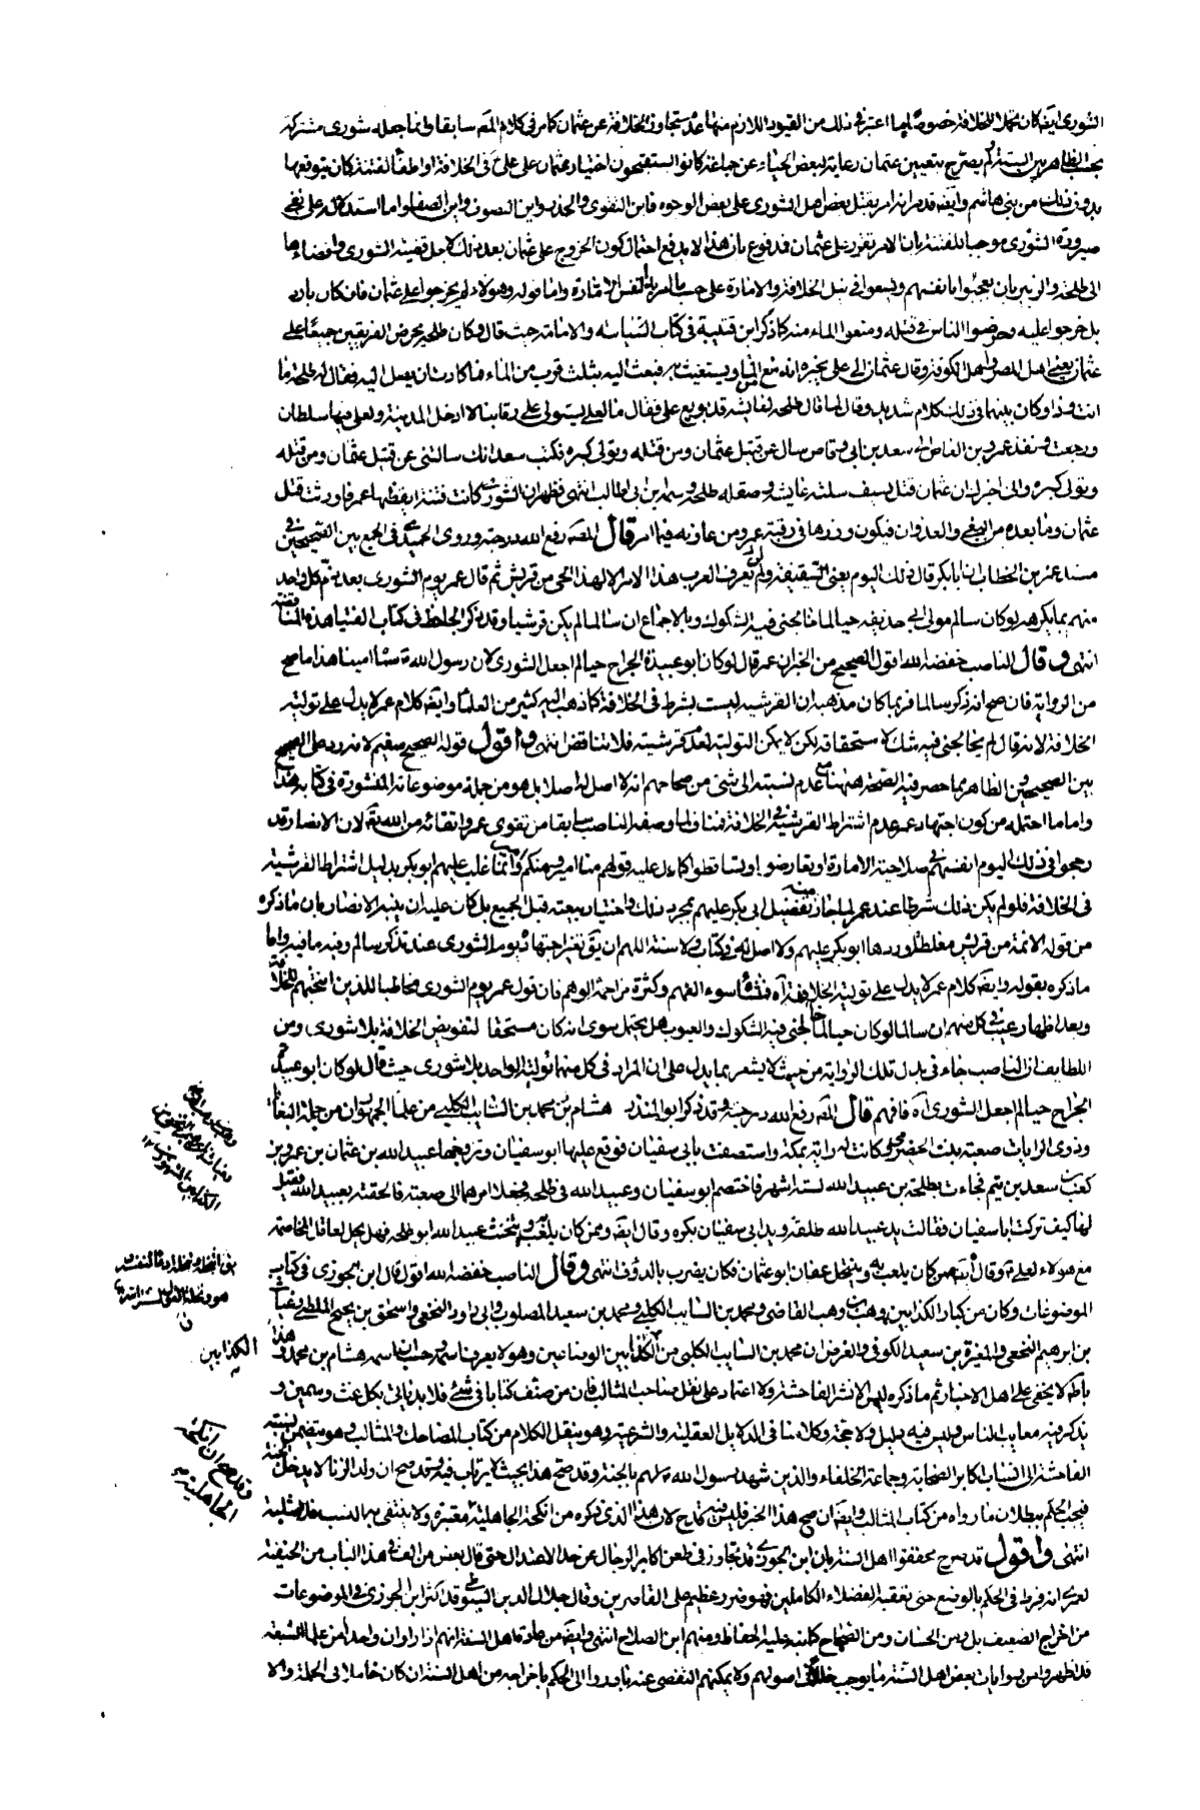 الشورى ايضا كان محلا للخلافة خصوصا اذا اعتبر في ذلك من القيود اللازم منها عدم تجاوز الخلافة عن عثمان كما مر في كلام المص سابقا وانما جعله شورى مشتركة
بحسب الظاهر بين الستة ولم يصرح بتعيين عثمان رعاية لبعض الحياء عن جماعة كانوا يستقبحون اختيار عثمان على علي ع في الخلافة او اطفأ لفتنة كان يتوقعها
بدون ذلك من بني هاشم وايضا قد مر انه امر بقتل بعض اهل الشورى على بعض الوجوه فاين التقوى والجذب واين التصوف واين الصفا واما استدلاله على نفي
صيرورة الشورى موجبا للفتنة بان الامر تقرر على عثمان فمدفوع بان هذا لا يدفع احتمال كون الخروج على عثمان بعد ذلك لاجل قضية الشورى وافضاءها
الى طلحة والزبير بان يعجبوا بانفسهم ويسعوا في نيل الخلافة والامارة على حسب النفس الامارة واما قوله وهؤلاء لم يخرجوا على عثمان فان كان بارد
بل خرجوا عليه وحرضوا الناس في قتله ومنعوا الماء منه كما ذكر ابن قتيبة في كتاب السياسة والامامة حيث قال وكان طلحة يحرض الفريقين جميعا على
عثمان يعني اهل المصر واهل الكوفة وقال عثمان الى علي يخبره انه منع الماء ويستغيث به فبعث اليه بثلث قرب من الماء فما كادت ان يصل اليه فقال له طلحة ما
انت وذا وكان بينهما في ذلك كلام شديد وقال لما قال طلحة لعايشة قد بويع علي فقال ما لعلي يستولي على رقابنا لا ادخل المدينة ولعلي فيها سلطان
ورجعت و نفذ عمرو بن العاص الى سعد بن ابي وقاص سال عن قتل عثمان ومن قتله وتولى كبره فكتب سعد انك سالتني عن قتل عثمان ومن قتله
وتولى كبره واني اخبرك ان عثمان قتل بسيف سلته عايشة وصقله طلحة وسمه ابن ابي طالب انتهى فظهر ان الشورى كانت فتنة ايقظها عمر فاورثت قتل
عثمان وما بعده من البغي والعدوان فيكون وزرها في رقبة عمر ومن عاونه فيما امر قال المص رفع الله درجته وروى الحميدي في الجمع بين الصحيحين في
مسند عمر بن الخطاب ان ابا بكر قال ذلك اليوم يعني السقيفة ولن تعرف العرب هذا الامر الا لهذا الحي من قريش ثم قال عمر يوم الشورى بعد ذم كل واحد
منهم بما يكرهه لو كان سالم مولى ابي حذيفة حيا لما خالجني فيه الشكوك وبالاجماع ان سالما لم يكن قرشيا وقد ذكر الجاحظ في كتاب الفتيا هذه المناقضة
انتهى وقال الناصب خفضه الله اقول الصحيح من الخبر ان عمر قال لو كان ابو عبيدة الجراح حيا لم اجعل الشورى لان رسول الله ص سماه امينا هذا ما صح
من الرواية فان صح انه ذكر سالما فربما كان مذهبه ان القرشية ليست بشرط في الخلافة كما ذهب اليه كثير من العلماء وايضا كلام عمر لا يدل على تولية
الخلافة لانه قال لم يخالجني فيه شك لاستحقاقه لكن لا يمكن التولية لعدم قرشيته فلا تناقض انتهى واقول قوله الصحيح سقيم لانه رد على الصحيح
بين الصحيحين والظاهر مما حصر فيه الصحة ههنا مع عدم نسبته الى شئ من صحاحهم انه لا اصل له اصلا بل هو من جملة موضوعاته المنشورة في كتابه هذا
واما ما احتمله من كون اجتهاد عمر عدم اشتراط القرشية في الخلافة فمناف لما وصفه الناصب سابقا من تقوى عمر واتقائه من الله تعالى لان الانصار قد
رجحوا في ذلك اليوم انفسهم في صلاحية الامارة او تعارضوا وتساقطوا كما دل عليه قولهم منا امير ومنكم امير وانما غلب عليهم ابو بكر بدليل اشتراط القرشية
في الخلافة فلو لم يكن ذلك شرطا عند عمر لما جاز منه تفضيل ابي بكر عليهم بمجرد ذلك واختيار بيعته قبل الجميع بل كان عليه ان ينبه الانصار بان ما ذكره
من قوله الائمة من قريش مغلطة اوردها ابو بكر عليهم ولا اصل له في كتاب ولا سنة اللهم ان يق تغير اجتهاده يوم الشورى عند تذكر سالم وفيه ما فيه واما
ما ذكره بقوله وايضا كلام عمر لا يدل على تولية الخلافة آه فمنشأه سوء الفهم وكثرة مزاحمة الوهم فان قول عمر يوم الشورى مخاطبا للذين انتخبهم للخلافة
وبعد اظهار عيب في كل منهم ان سالما لو كان حيا لما خالجني فيه الشكوك والعيوب هل يحتمل سوى انه كان مستحقا لتفويض الخلافة بلا شورى ومن
اللطايف ان الناصب جاء في بدل تلك الرواية من حيث لا يشعر بما يدل على ان المراد في كل منهما تولية الواحد بلا شورى حيث قال لو كان ابو عبيدة
الجراح حيا لم اجعل الشورى آه فافهم قال المص رفع الله درجته وقد ذكر ابو المنذر هشام بن محمد بن السايب الكلبي من علماء الجمهور ان من جملة البغايا
وذوي الرايات صعبة بنت الحضرمي كانت لها راية بمكة واستصفت بابي سفيان فوقع عليها ابو سفيان وتزوجها عبيد الله بن عثمان بن عمرو بن
كعب بن سعد بن تيم فجاءت بطلحة بن عبيد الله لستة اشهر فاختصم ابو سفيان وعبيد الله في طلحة فجعلا امرهما الى صعبة فالحقته بعبيد الله فقيل
لها كيف تركت ابا سفيان فقالت يد عبيد الله طلقة ويد ابي سفيان بكرة وقال ايضا وممن كان يلعب به ويتخنث عبيد الله ابو طلحة فهل يحل لعاقل المخاصمة
مع هؤلاء لعلي ع وقال ايضا ممن كان يلعب به ويتخيل عفان ابو عثمان فكان يضرب بالدفوف انتهى وقال الناصب خفضه الله اقول قال ابن الجوزي في كتاب
الموضوعات وكان من كبار الكذابين وهب بن وهب القاضي ومحمد بن السايب الكلبي ومحمد بن سعيد المصلوب وابي داود النخعي واسحق بن نجيح الملطي وغياث
بن ابرهيم النخعي والمغيرة بن سعيد الكوفي والغرض ان محمد بن السايب الكلبي من الكذابين الوضاعين وهو لا يعرف اسمه وحسب ان اسمه هشام بن محمد وهذا
باطل كما لا يخفى على اهل الاخبار ثم ما ذكره ليس الا نشر الفاحشة ولا اعتماد على نقل صاحب المثالب فان من صنف كتابا في شئ فلا بد ان ياتي بكل غث وسمين و
يذكر فيه معايب الناس وليس فيه دليل ولا حجة وكلامنا في الدلايل العقلية والشرعية وهو ينقل الكلام من كتاب المضاحك والمثالب وهو يتضمن نسبة
الفاحشة الى انساب اكابر الصحابة وجماعة الخلفاء والذين شهد رسول الله ص لهم بالجنة وقد صح هذا بحيث لا يرتاب فيه وقد صح ان ولد الزنا لا يدخل الجنة
فيجب الحكم ببطلان ما رواه من كتاب المثالب وايضا ان صح هذا الخبر فليس فيه قدح لان هذا الذي ذكره من انكحة الجاهلية معتبرة ولا ينتفي بها النسب
انتهى واقول قد صرح محققوا اهل السنة بان ابن الجوزي قد تجاوز في طعن اكابر الرجال عن حد الاعتدال حتى قال بعض من الف في هذا الباب من الحنفية
لعمري انه فرط في الحكم بالوضع حتى تعقبه الفضلاء الكاملين فهو ضرر عظيم على القاصرين وقال جلال الدين السيوطي قد اكثر ابن الجوزي في الموضوعات
من اخراج الضعيف بل ومن الحسان ومن الصحاح كما نبه عليه الحفاظ ومنهم ابن الصلاح انتهى وايضا من عادة اهل السنة انهم اذا راوا ان واحدا من علماء الشيعة
قد اظهر من روايات بعض اهل السنة ما يوجب خلل اصولهم ولا يمكنهم التفصي عنه بادروا الى الحكم بإخراجه من اهل السنة ان كان خاملا في الجملة والا
الكذابين
وقد صح ان انكحة
الجاهلية